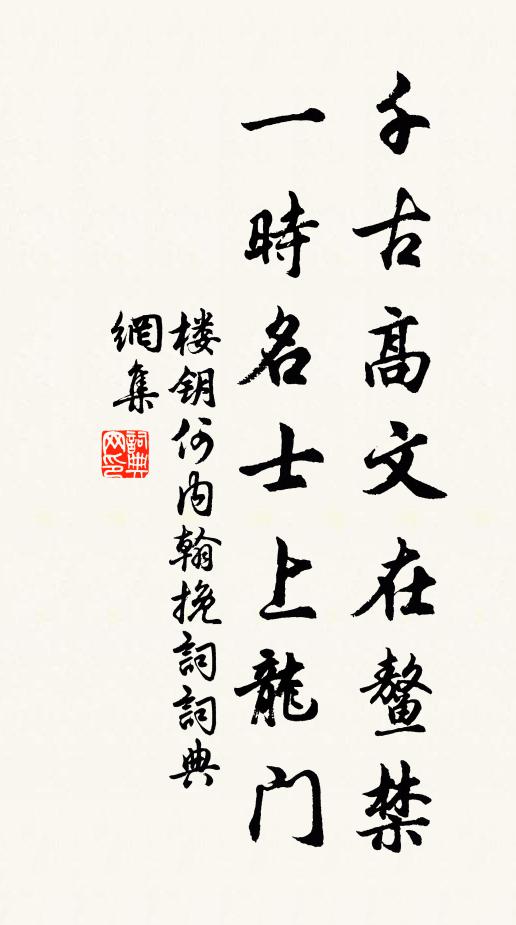 千古高文在鳌禁
一時名士上龍门
楼钥何内翰挽詞詞典
網集
詞典
网印